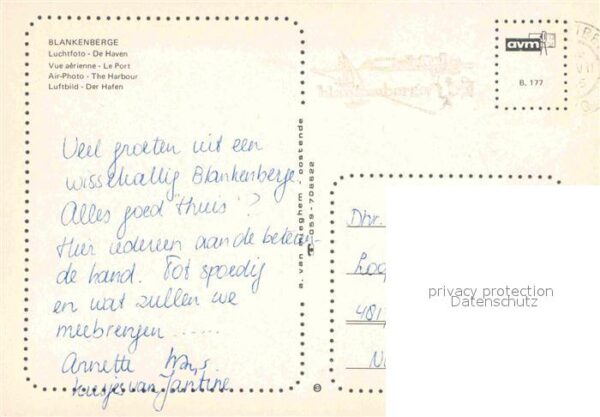 BLANKENBERGE
Luchtfoto - De Haven
Vue aérienne - Le Port
Air-Photo - The Harbour
Luftbild - Der Hafen
avm
B. 177
Veel groeten uit een
wisselvallig Blankenberge.
Alles goed thuis?
Hier iedereen aan de beteren-
de hand. Tot spoedig
en wat zullen we
meebrengen ......
Annette
kusjes van Jantine
oostende
059-706622
Dhr.
481
privacy protection
Datenschutz